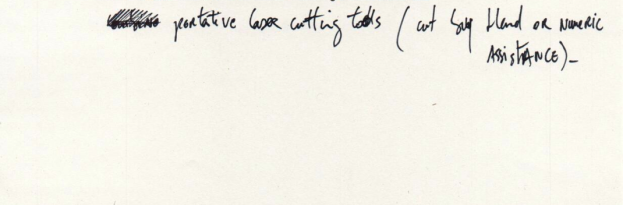 portative laser cutting tools (cut by Hand OR NUMERIC
ASSISTANCE)_